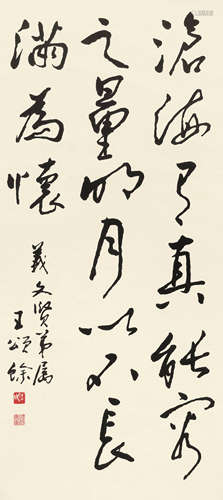 滄海有真能容
之量明月以不長
滿為懷
義文賢弟屬
王頌餘